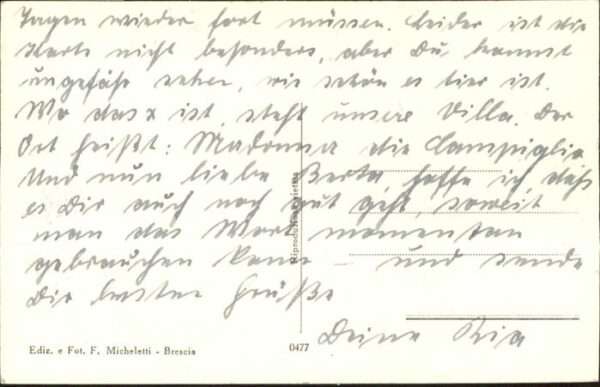 Tagen wieder fort müssen. Leider ist die
Karte nicht besonders, aber Du kannst
ungefähr sehen, wie schön es hier ist.
Wo das x ist, steht unsere Villa. Der
Ort heißt: Madonna die Campiglio
Und nun liebe Berta, hoffe ich, daß
es Dir auch noch gut geht, soweit
man das Wort momentan
gebrauchen kann – und sende
Dir beste Grüße
Deine Ria
Ediz. e Fot. F. Micheletti - Brescia
0477